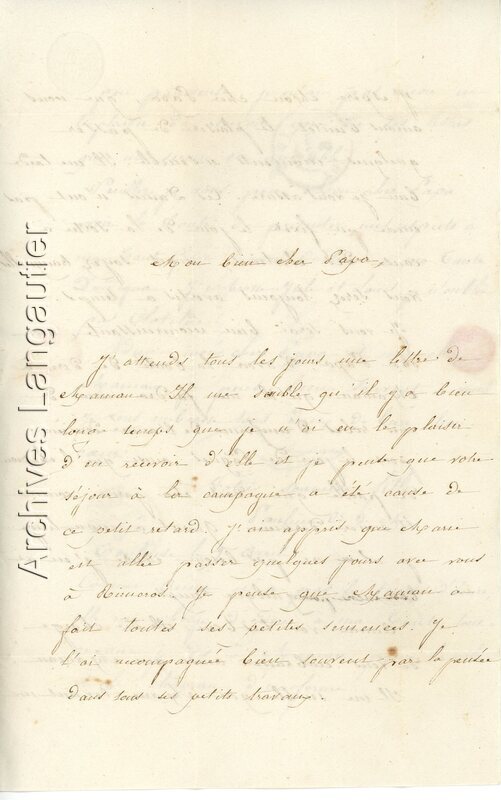 Mon bien cher Papa,
J'attends tous les jours une lettre de
Maman. Il me semble qu'il y a bien
long temps que je n'ai eu le plaisir
d'en recevoir d'elle et je pense que votre
séjour à la campagne a été cause de
ce petit retard. J'ai appris que Marie
est allée passer quelques jours avec vous
à Rimoros. Je pense que Maman a
fait toutes ses petites semences. Je
l'ai accompagnée bien souvent par la pensée
dans tous ses petits travaux.
Archives Langautier